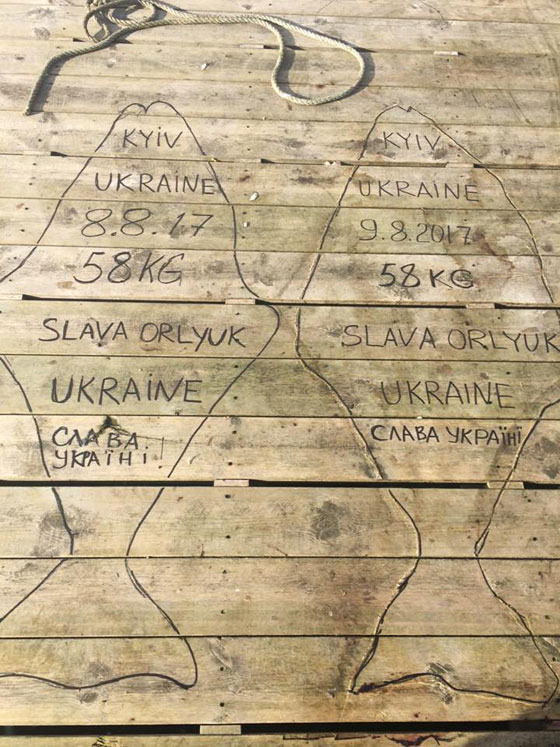 KYIV
UKRAINE
8.8.17
58KG
SLAVA ORLYUK
UKRAINE
СЛАВА
УКРАЇНІ!
KYIV
UKRAINE
9.8.2017
58KG
SLAVA ORLYUK
UKRAINE
СЛАВА УКРАЇНІ